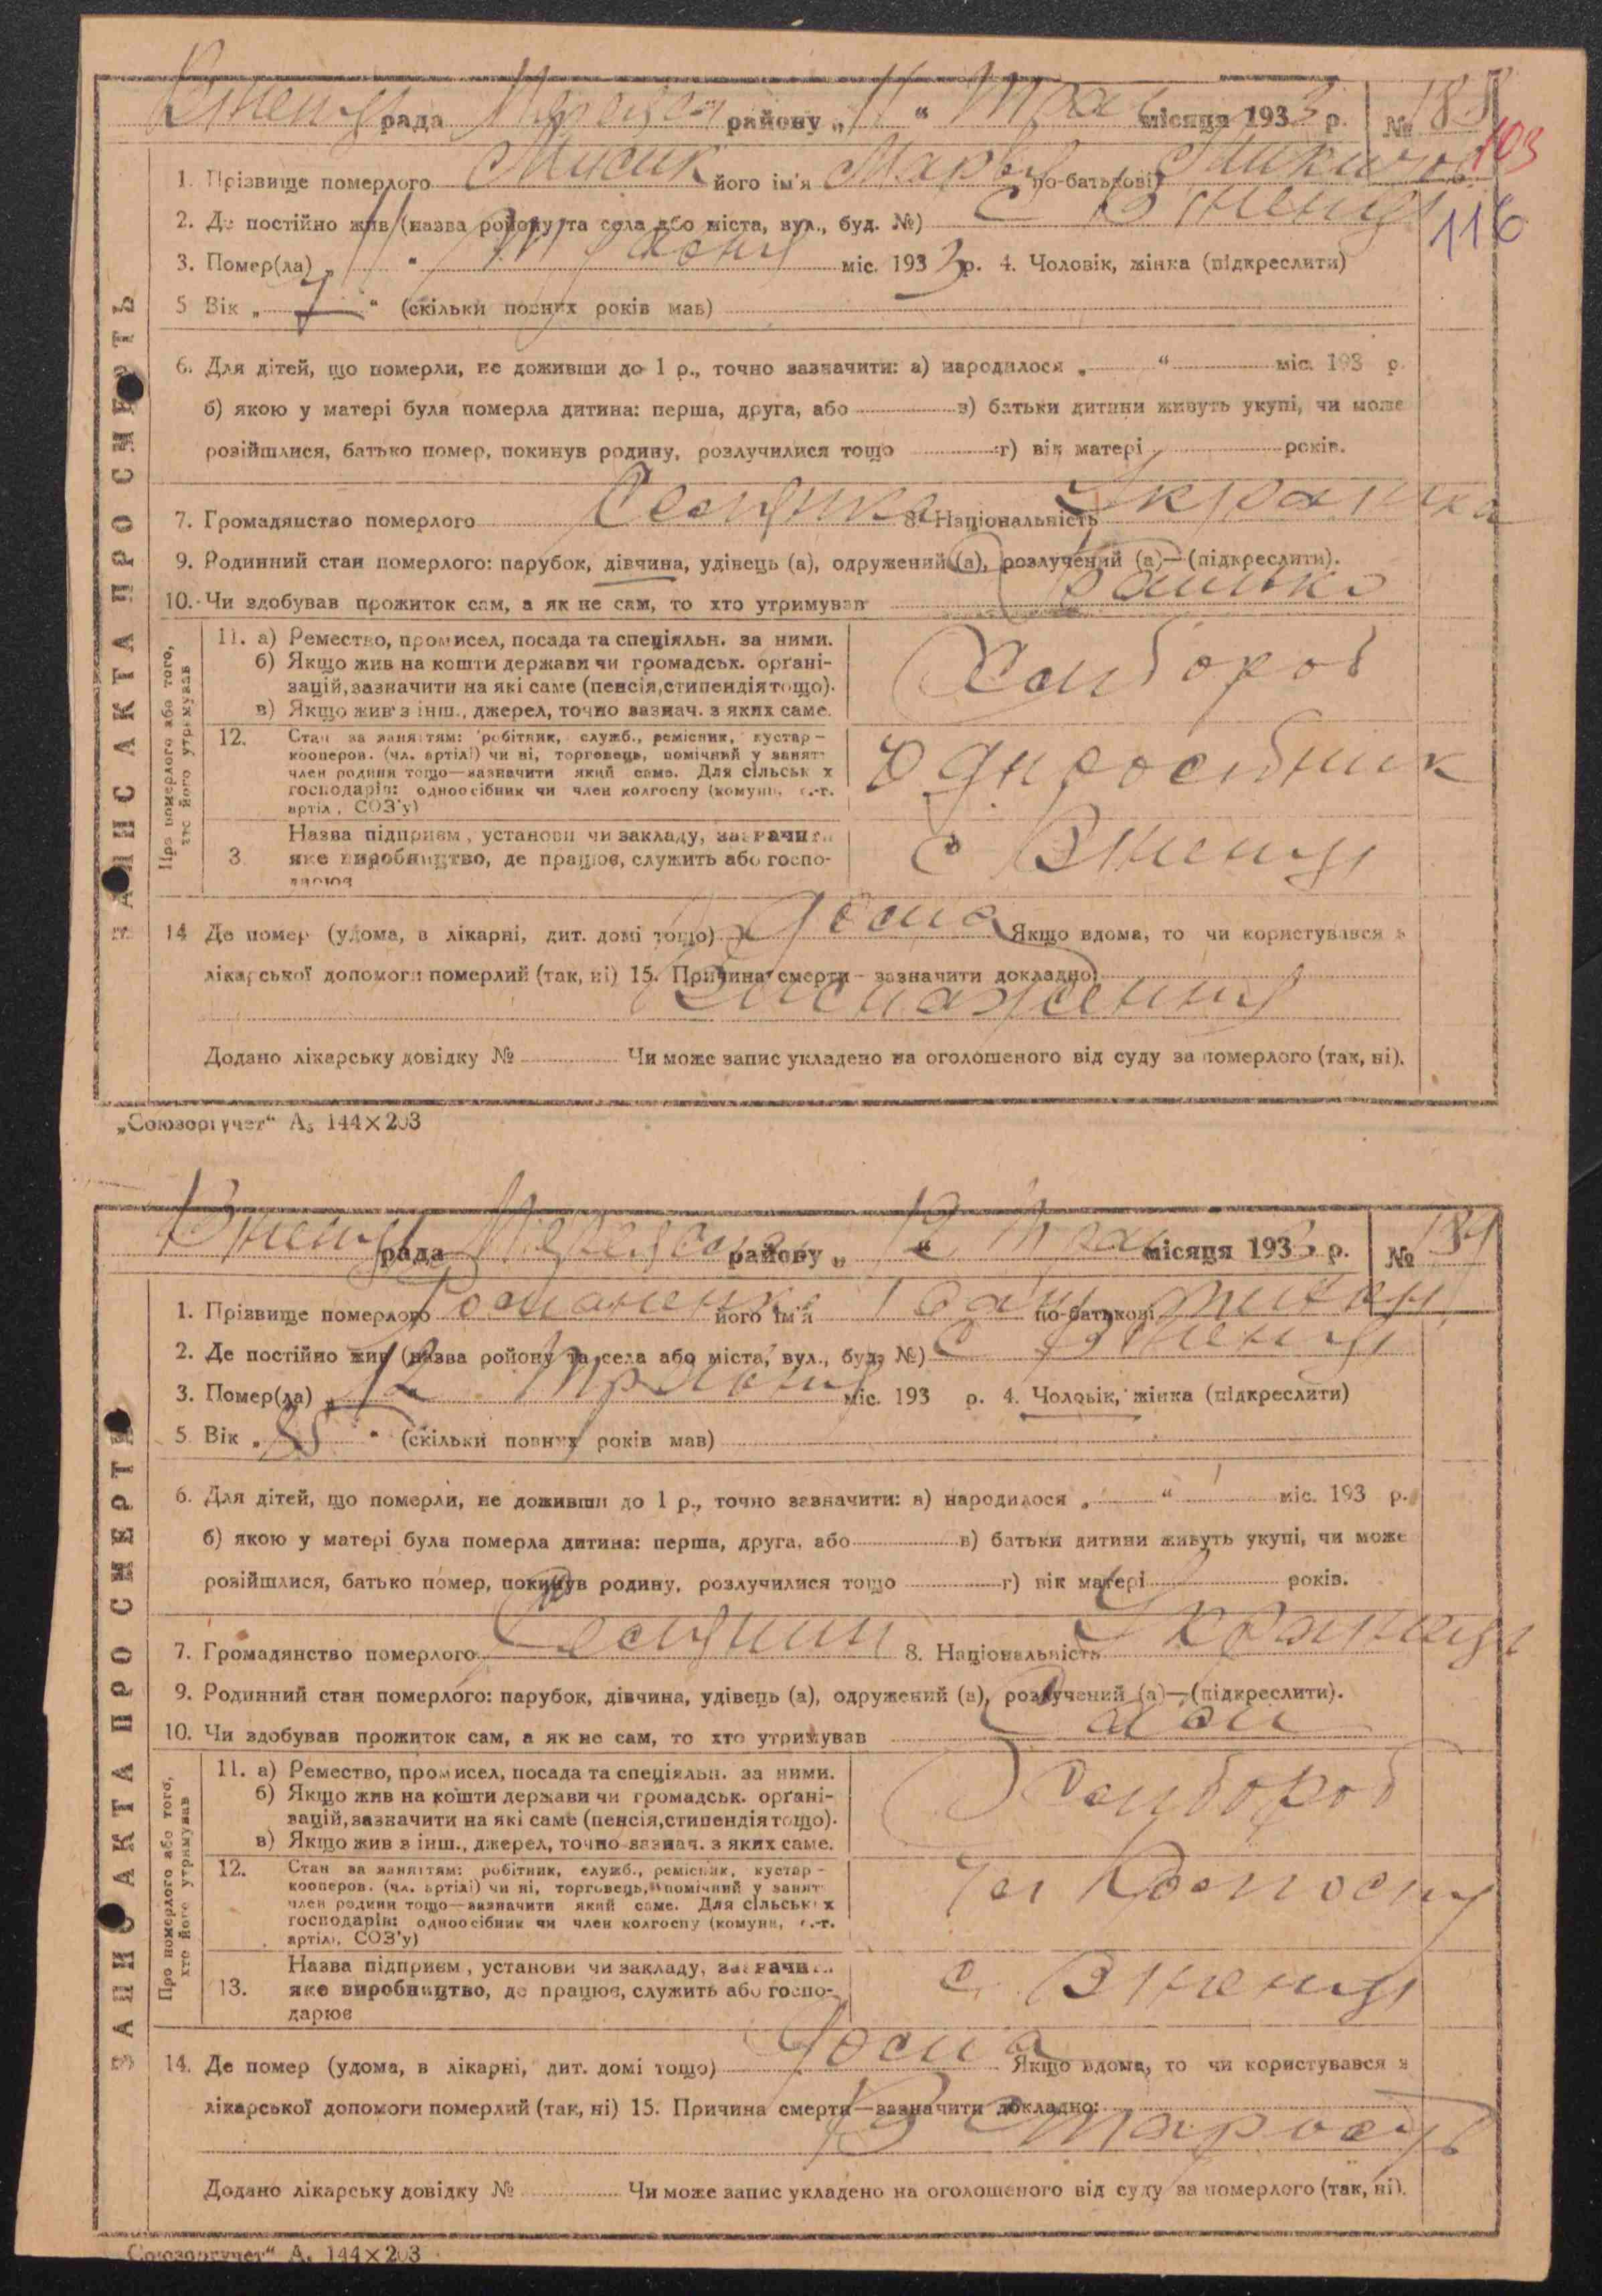 рада району „ 11 “ Трав місяця 1933 р. № 188
103
1. Прізвище померлого Мисик його ім'я Марія по-батькові
116
2. Де постійно жив (назва ройону та села або міста, вул., буд. №) с
3. Помер(ла) „ 11 “ міс. 1933 р. 4. Чоловік, жінка (підкреслити)
5 Вік „ 7 “ (скільки повних років мав)
6. Для дітей, що померли, не доживши до 1 р., точно зазначити: а) народилося „ “ міс. 193 р.
б) якою у матері була померла дитина: перша, друга, або в) батьки дитини живуть укупі, чи може
розійшлися, батько помер, покинув родину, розлучилися тощо г) вік матері років.
7. Громадянство померлого Селянка 8. Національність Українка
9. Родинний стан померлого: парубок, дівчина, удівець (а), одружений (а), розлучений (а)—(підкреслити).
10. Чи здобував прожиток сам, а як не сам, то хто утримував Батько
ЗАПИС АКТА ПРО СМЕРТЬ
Про померлого або того,
хто його утримував
11. а) Ремество, промисел, посада та спеціяльн. за ними.
б) Якщо жив на кошти держави чи громадськ. орґані-
зацій, зазначити на які саме (пенсія, стипендія тощо).
в) Якщо жив з інш., джерел, точно зазнач. з яких саме.
Хлібороб
12. Стан за заняттям: робітник, служб., ремісник, кустар –
кооперов. (чл. артілі) чи ні, торговець, помічний у занят
член родини тощо—зазначити який саме. Для сільськ х
господарів: одноосібник чи член колгоспу (комуни, с.-г.
артіл, СОЗ'у)
Одноосібник
3. Назва підприєм, установи чи закладу, зазначити
яке виробництво, де працює, служить або госпо-
дарює
с
14 Де помер (удома, в лікарні, дит. домі тощо) Дома Якщо вдома, то чи користувався з
лікарської допомоги померлий (так, ні) 15. Причина смерти – зазначити докладно:
Виснаження
Додано лікарську довідку № Чи може запис укладено на оголошеного від суду за померлого (так, ні).
„Союзоргучет“ А₅ 144×203
рада району „ 12 “ Трав місяця 1933 р. № 189
1. Прізвище померлого Романенко його ім'я Іван по-батькові
2. Де постійно жив (назва ройону та села або міста, вул., буд. №) с
3. Помер(ла) „ 12 Травня міс. 193 р. 4. Чоловік, жінка (підкреслити)
5 Вік „ “ (скільки повних років мав)
6. Для дітей, що померли, не доживши до 1 р., точно зазначити: а) народилося „ “ міс. 193 р.
б) якою у матері була померла дитина: перша, друга, або в) батьки дитини живуть укупі, чи може
розійшлися, батько помер, покинув родину, розлучилися тощо г) вік матері років.
7. Громадянство померлого Селянин 8. Національність Українець
9. Родинний стан померлого: парубок, дівчина, удівець (а), одружений (а), розлучений (а)—(підкреслити).
10. Чи здобував прожиток сам, а як не сам, то хто утримував Сам
ЗАПИС АКТА ПРО СМЕРТЬ
Про померлого або того,
хто його утримував
11. а) Ремество, промисел, посада та спеціяльн. за ними.
б) Якщо жив на кошти держави чи громадськ. орґані-
зацій, зазначити на які саме (пенсія, стипендія тощо).
в) Якщо жив з інш., джерел, точно зазнач. з яких саме.
Хлібороб
12. Стан за заняттям: робітник, служб., ремісник, кустар –
кооперов. (чл. артілі) чи ні, торговець, помічний у занят
член родини тощо—зазначити який саме. Для сільськ х
господарів: одноосібник чи член колгоспу (комуни, с.-г.
артіл, СОЗ'у)
Чл Колгоспу
13. Назва підприєм, установи чи закладу, зазначи
яке виробництво, де працює, служить або госпо-
дарює
с
14. Де помер (удома, в лікарні, дит. домі тощо) Дома Якщо вдома, то чи користувався з
лікарської допомоги померлий (так, ні) 15. Причина смерти—зазначити докладно:
Додано лікарську довідку № Чи може запис укладено на оголошеного від суду за померлого (так, ні).
Союзоргучет“ А₅ 144×203